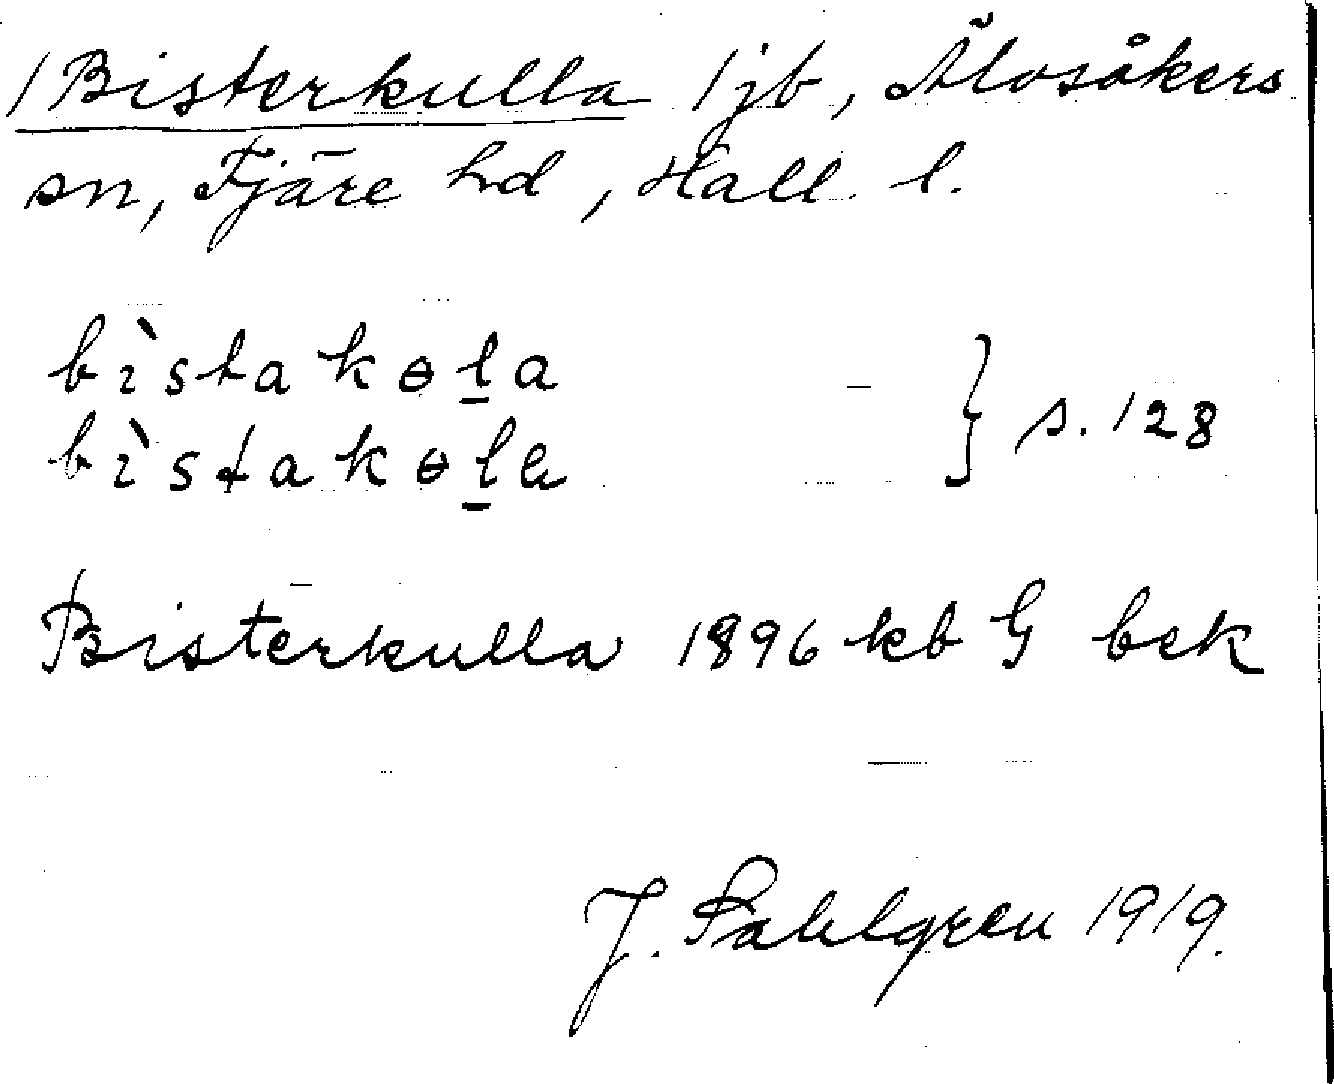 1 Bisterkulla 1 jb, Älvsåkers
sn, Fjäre hd, Hall. l.
bìstakɵl̲a
bìstakɵl̲a } s. 128
Bisterkulla 1896 kb G bek
J. Sahlgren 1919.